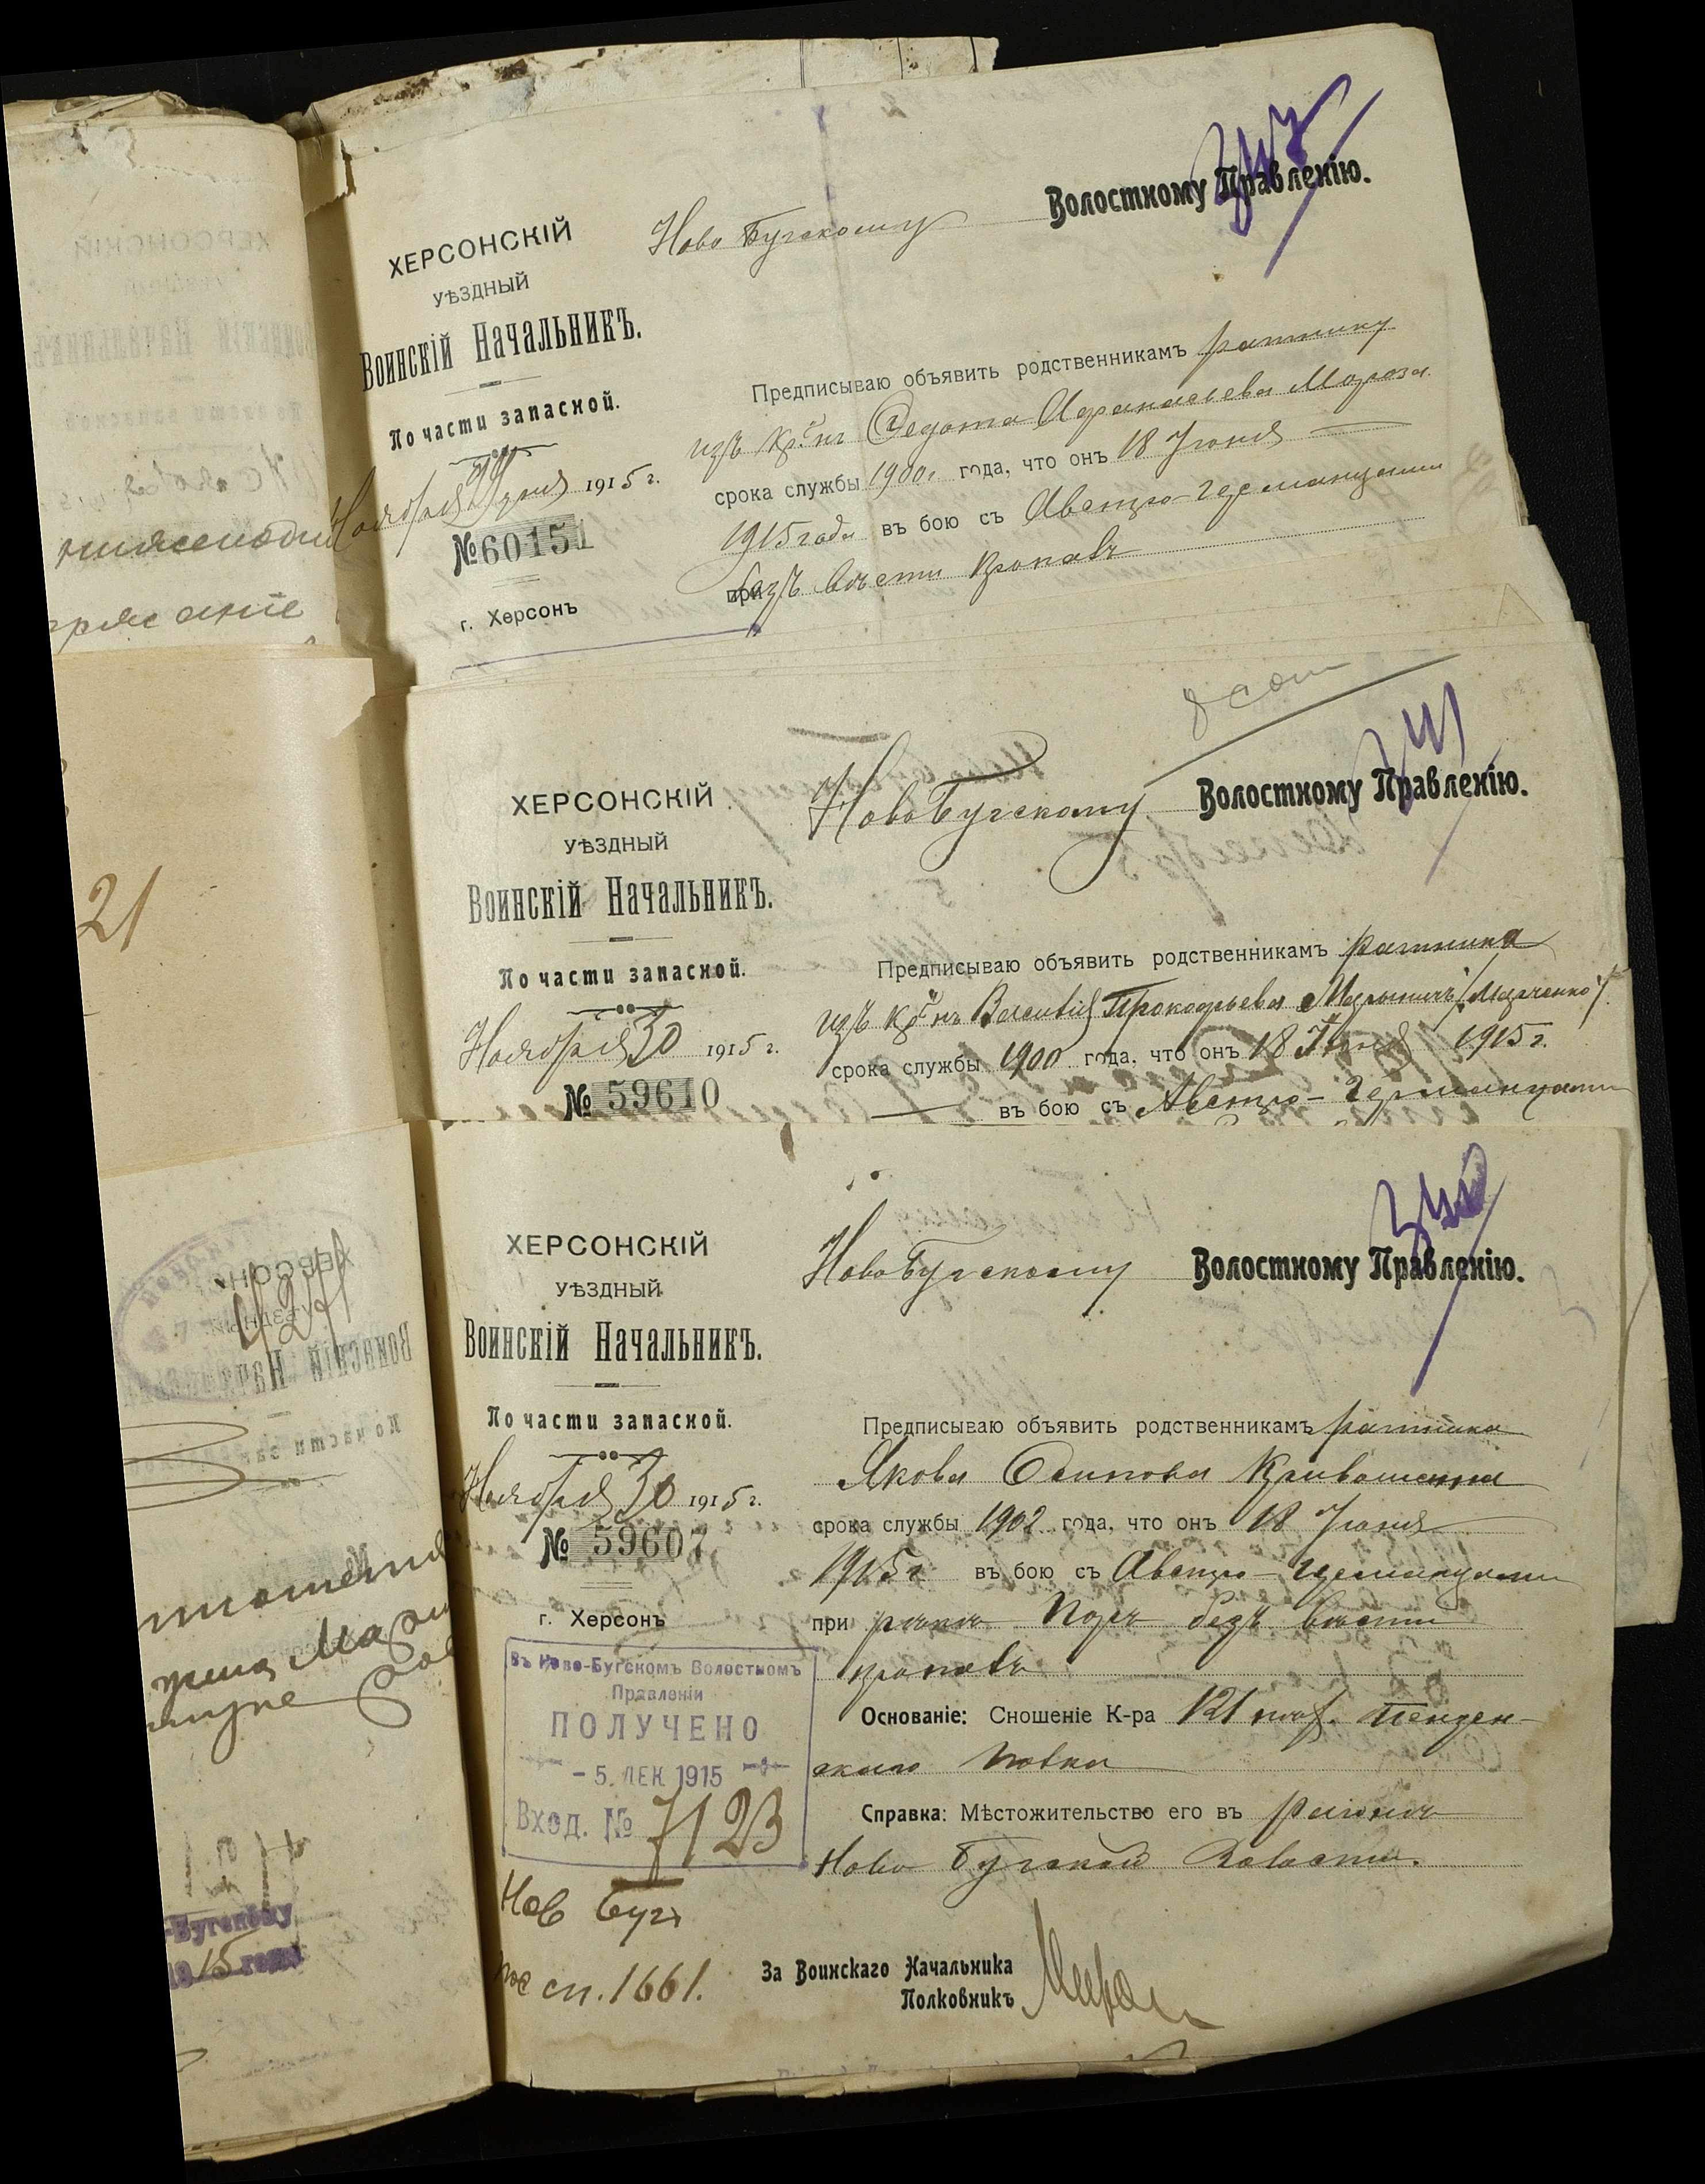 ХЕРСОНСКІЙ
УѢЗДНЫЙ
Воинскій Начальникъ.
По части запасной.
Ноября 1915 г.
№ 60151
г. Херсонъ
Ново Бугскому Волостному Правленію.
Предписываю объявить родственникамъ ратнику
изъ кр. Федота Афанасьева Мороза
срока службы 1900 г. года, что онъ 18 Іюня
1915 года въ бою съ Австро-Германцами
безъ вѣсти пропавъ
ХЕРСОНСКІЙ
УѢЗДНЫЙ
Воинскій Начальникъ.
По части запасной.
Ноября 30 1915 г.
№ 59610
НовоБугскому Волостному Правленію.
Предписываю объявить родственникамъ ратника
изъ Прокофьева /Марченко/
срока службы 1900 года, что онъ 18 Іюня 1915 г.
въ бою съ Австро-Германцами
21
ХЕРСОНСКІЙ
УѢЗДНЫЙ
Воинскій Начальникъ.
По части запасной.
Ноября 30 1915 г.
№ 59607
г. Херсонъ
НовоБугскому Волостному Правленію.
Предписываю объявить родственникамъ ратника
Якова Осипова
срока службы 1902 года, что онъ 18 Іюня
1915 г. въ бою съ Австро-Германцами
при безъ вѣсти
пропавъ
Основаніе: Сношеніе К-ра 121 пѣх. Пензен-
скаго полка
Справка: Мѣстожительство его въ районѣ
Ново Бугской Волости.
Въ Ново-Бугскомъ Волостномъ
Правленіи
ПОЛУЧЕНО
- 5. ДЕК 1915
Вход. № 7123
Нов Бугъ
сп. 1661.
За Воинскаго Начальника
Полковникъ
-Бугскому
1915 года